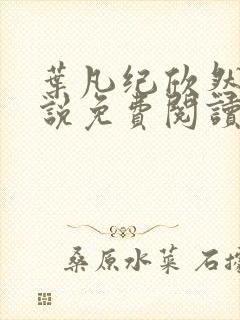 葉凡纪欣然
說免費閱讀
桑原水菜 石